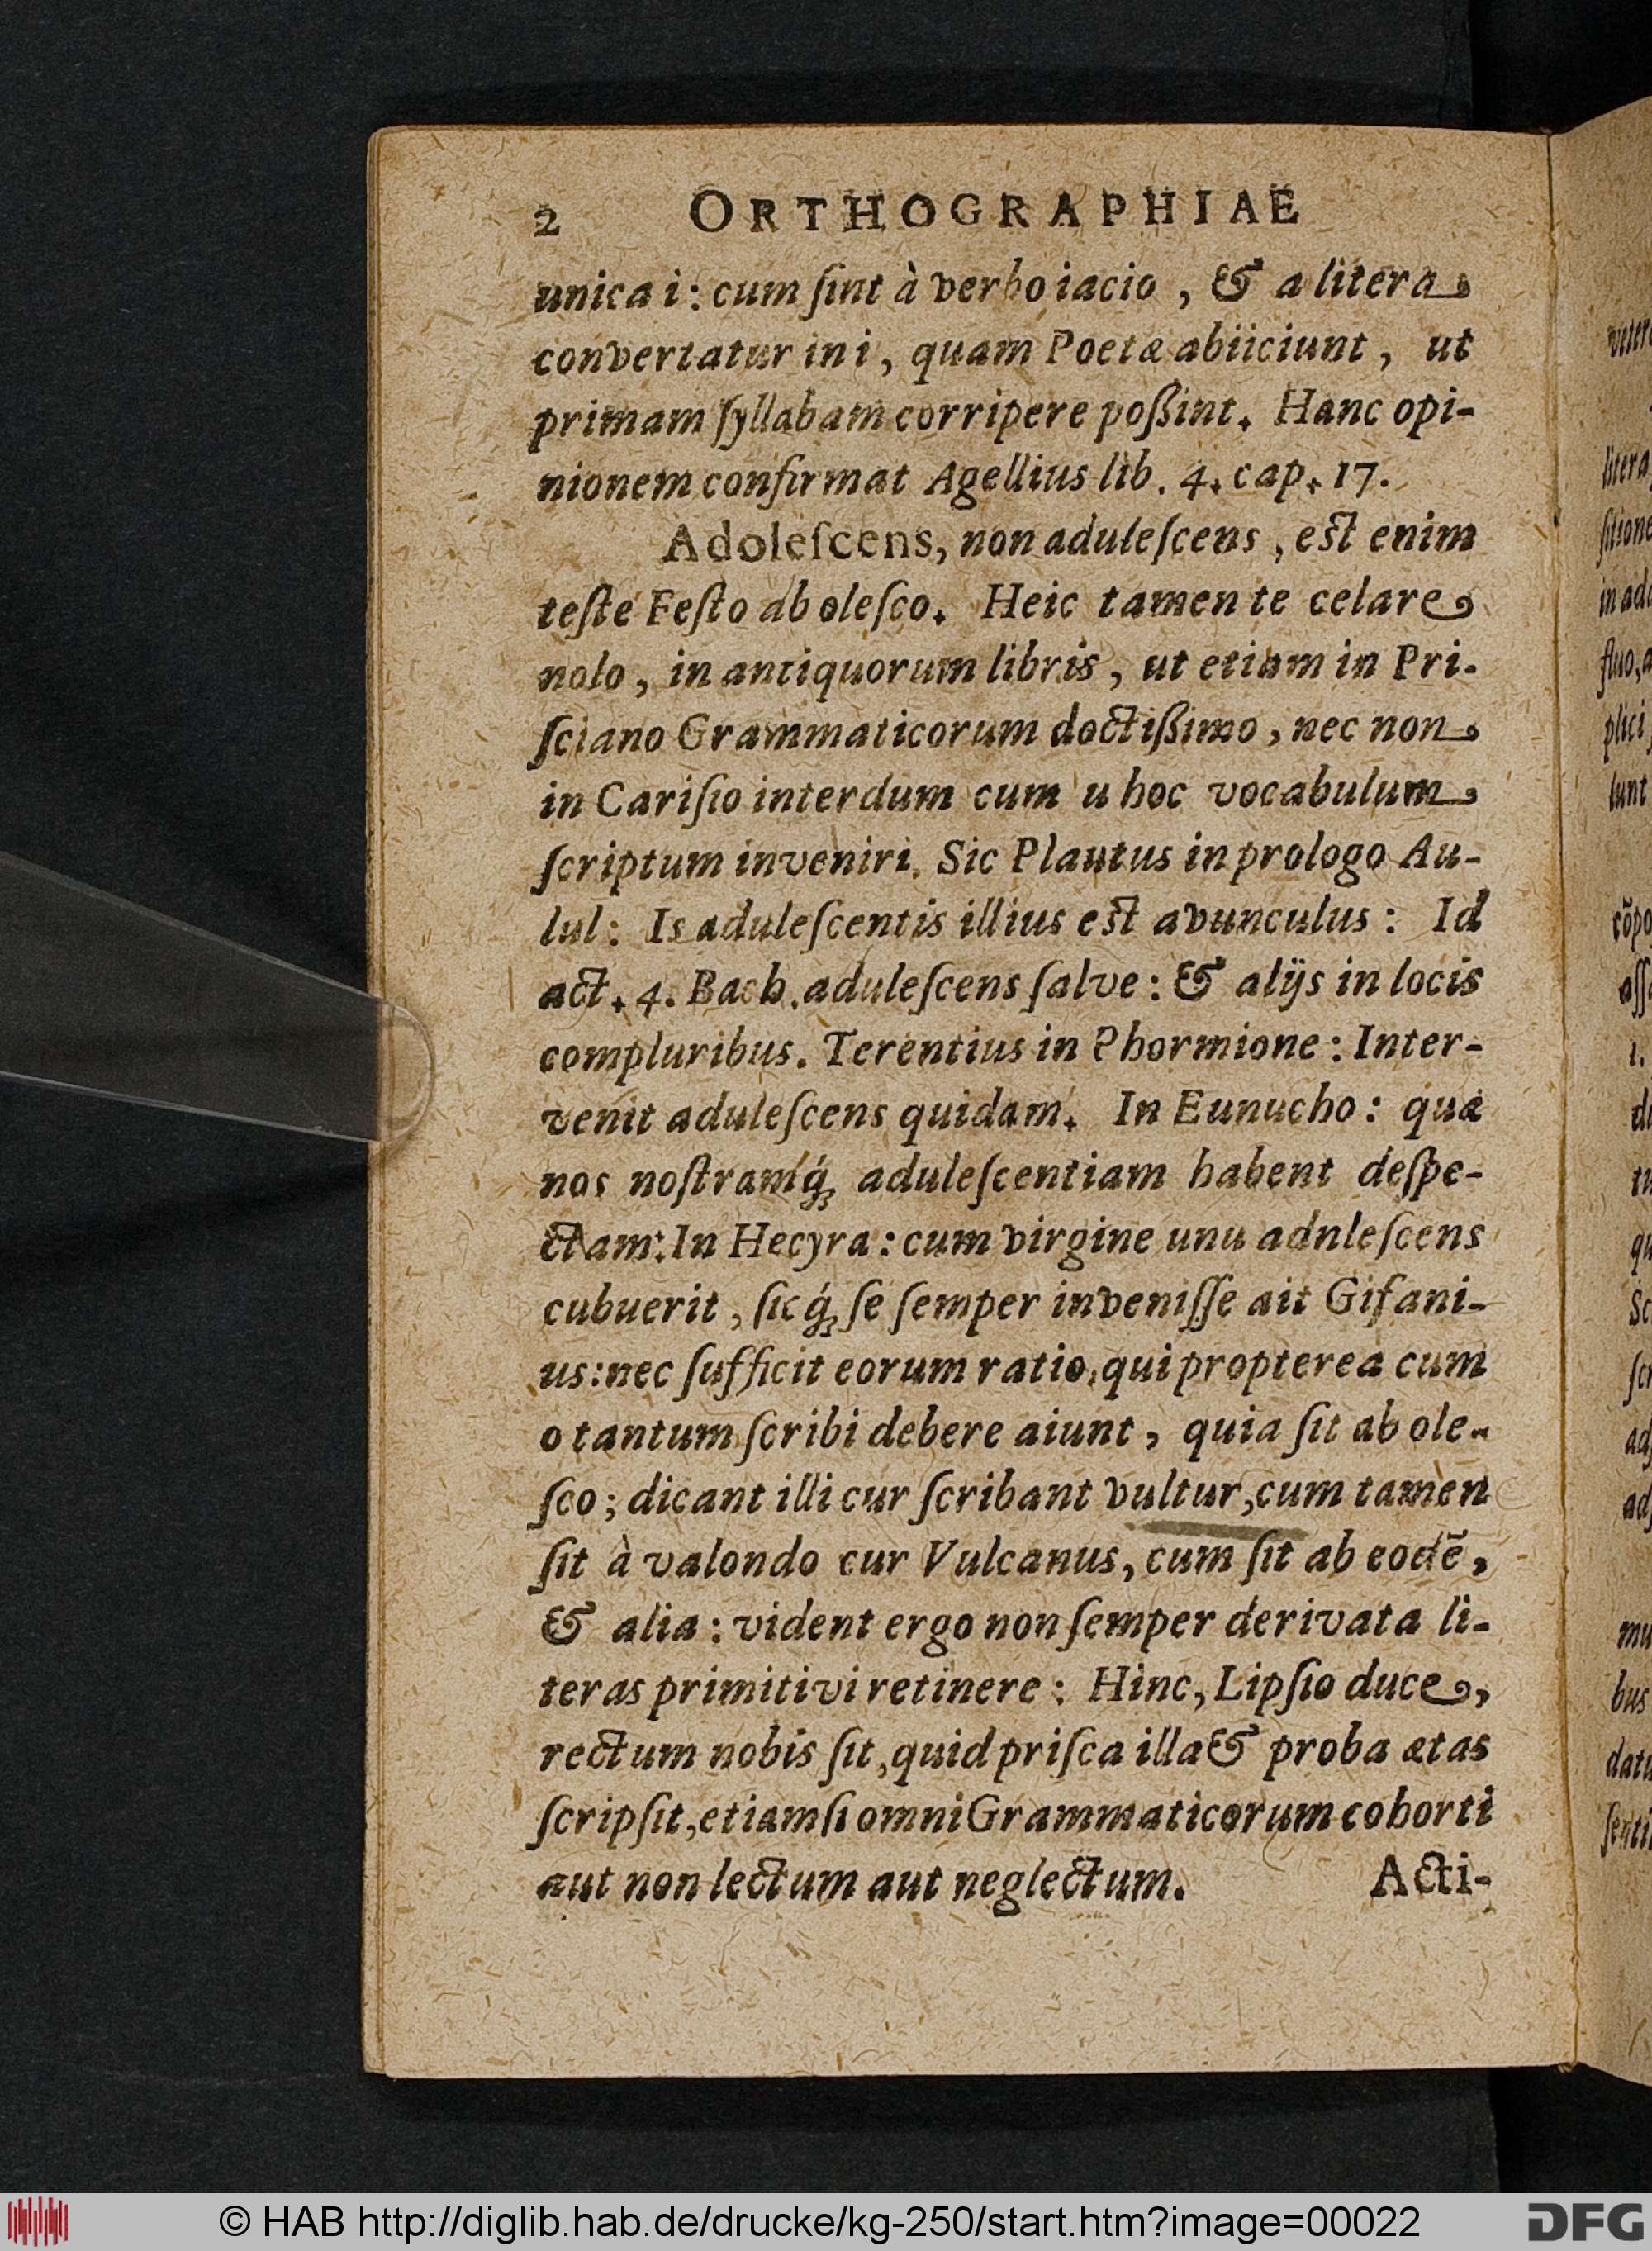 2 ORTHOGRAPHIAE
unica i: cum ſint à verbo iacio, & a litera
convertatur in i, quam Poetæ abiiciunt, ut
primam ſyllabam corripere poßint. Hanc opi-
nionem confirmat Agellius lib. 4. cap. 17.
Adoleſcens, non aduleſcens, eſt enim
teſte Feſto ab oleſco. Heic tamen te celare
nolo, in antiquorum libris, ut etiam in Pri-
ſciano Grammaticorum doctißimo, nec non
in Cariſio interdum cum u hoc vocabulum
ſcriptum inveniri. Sic Plautus in prologo Au-
lul: Is aduleſcentis illius eſt avunculus: Id
act. 4. Bach. aduleſcens ſalve: & alijs in locis
compluribus. Terentius in Phormione: Inter-
venit aduleſcens quidam. In Eunucho: quæ
nos noſtramq́; aduleſcentiam habent deſpe-
ctam: In Hecyra: cum virgine unu adnleſcens
cubuerit, ſicq́; ſe ſemper inveniſſe ait Gifani-
us: nec ſufficit eorum ratio, qui propterea cum
o tantum ſcribi debere aiunt, quia ſit ab ole-
ſco; dicant illi cur ſcribant vultur, cum tamen
ſit à valondo cur Vulcanus, cum ſit ab eodē,
& alia: vident ergo non ſemper derivata li-
teras primitivi retinere: Hinc, Lipſio duce,
rectum nobis ſit, quid priſca illa & proba ætas
ſcripſit, etiamſi omni Grammaticorum cohorti
aut non lectum aut neglectum. Acti-
© HAB http://diglib.hab.de/drucke/kg-250/start.htm?image=00022
DFG